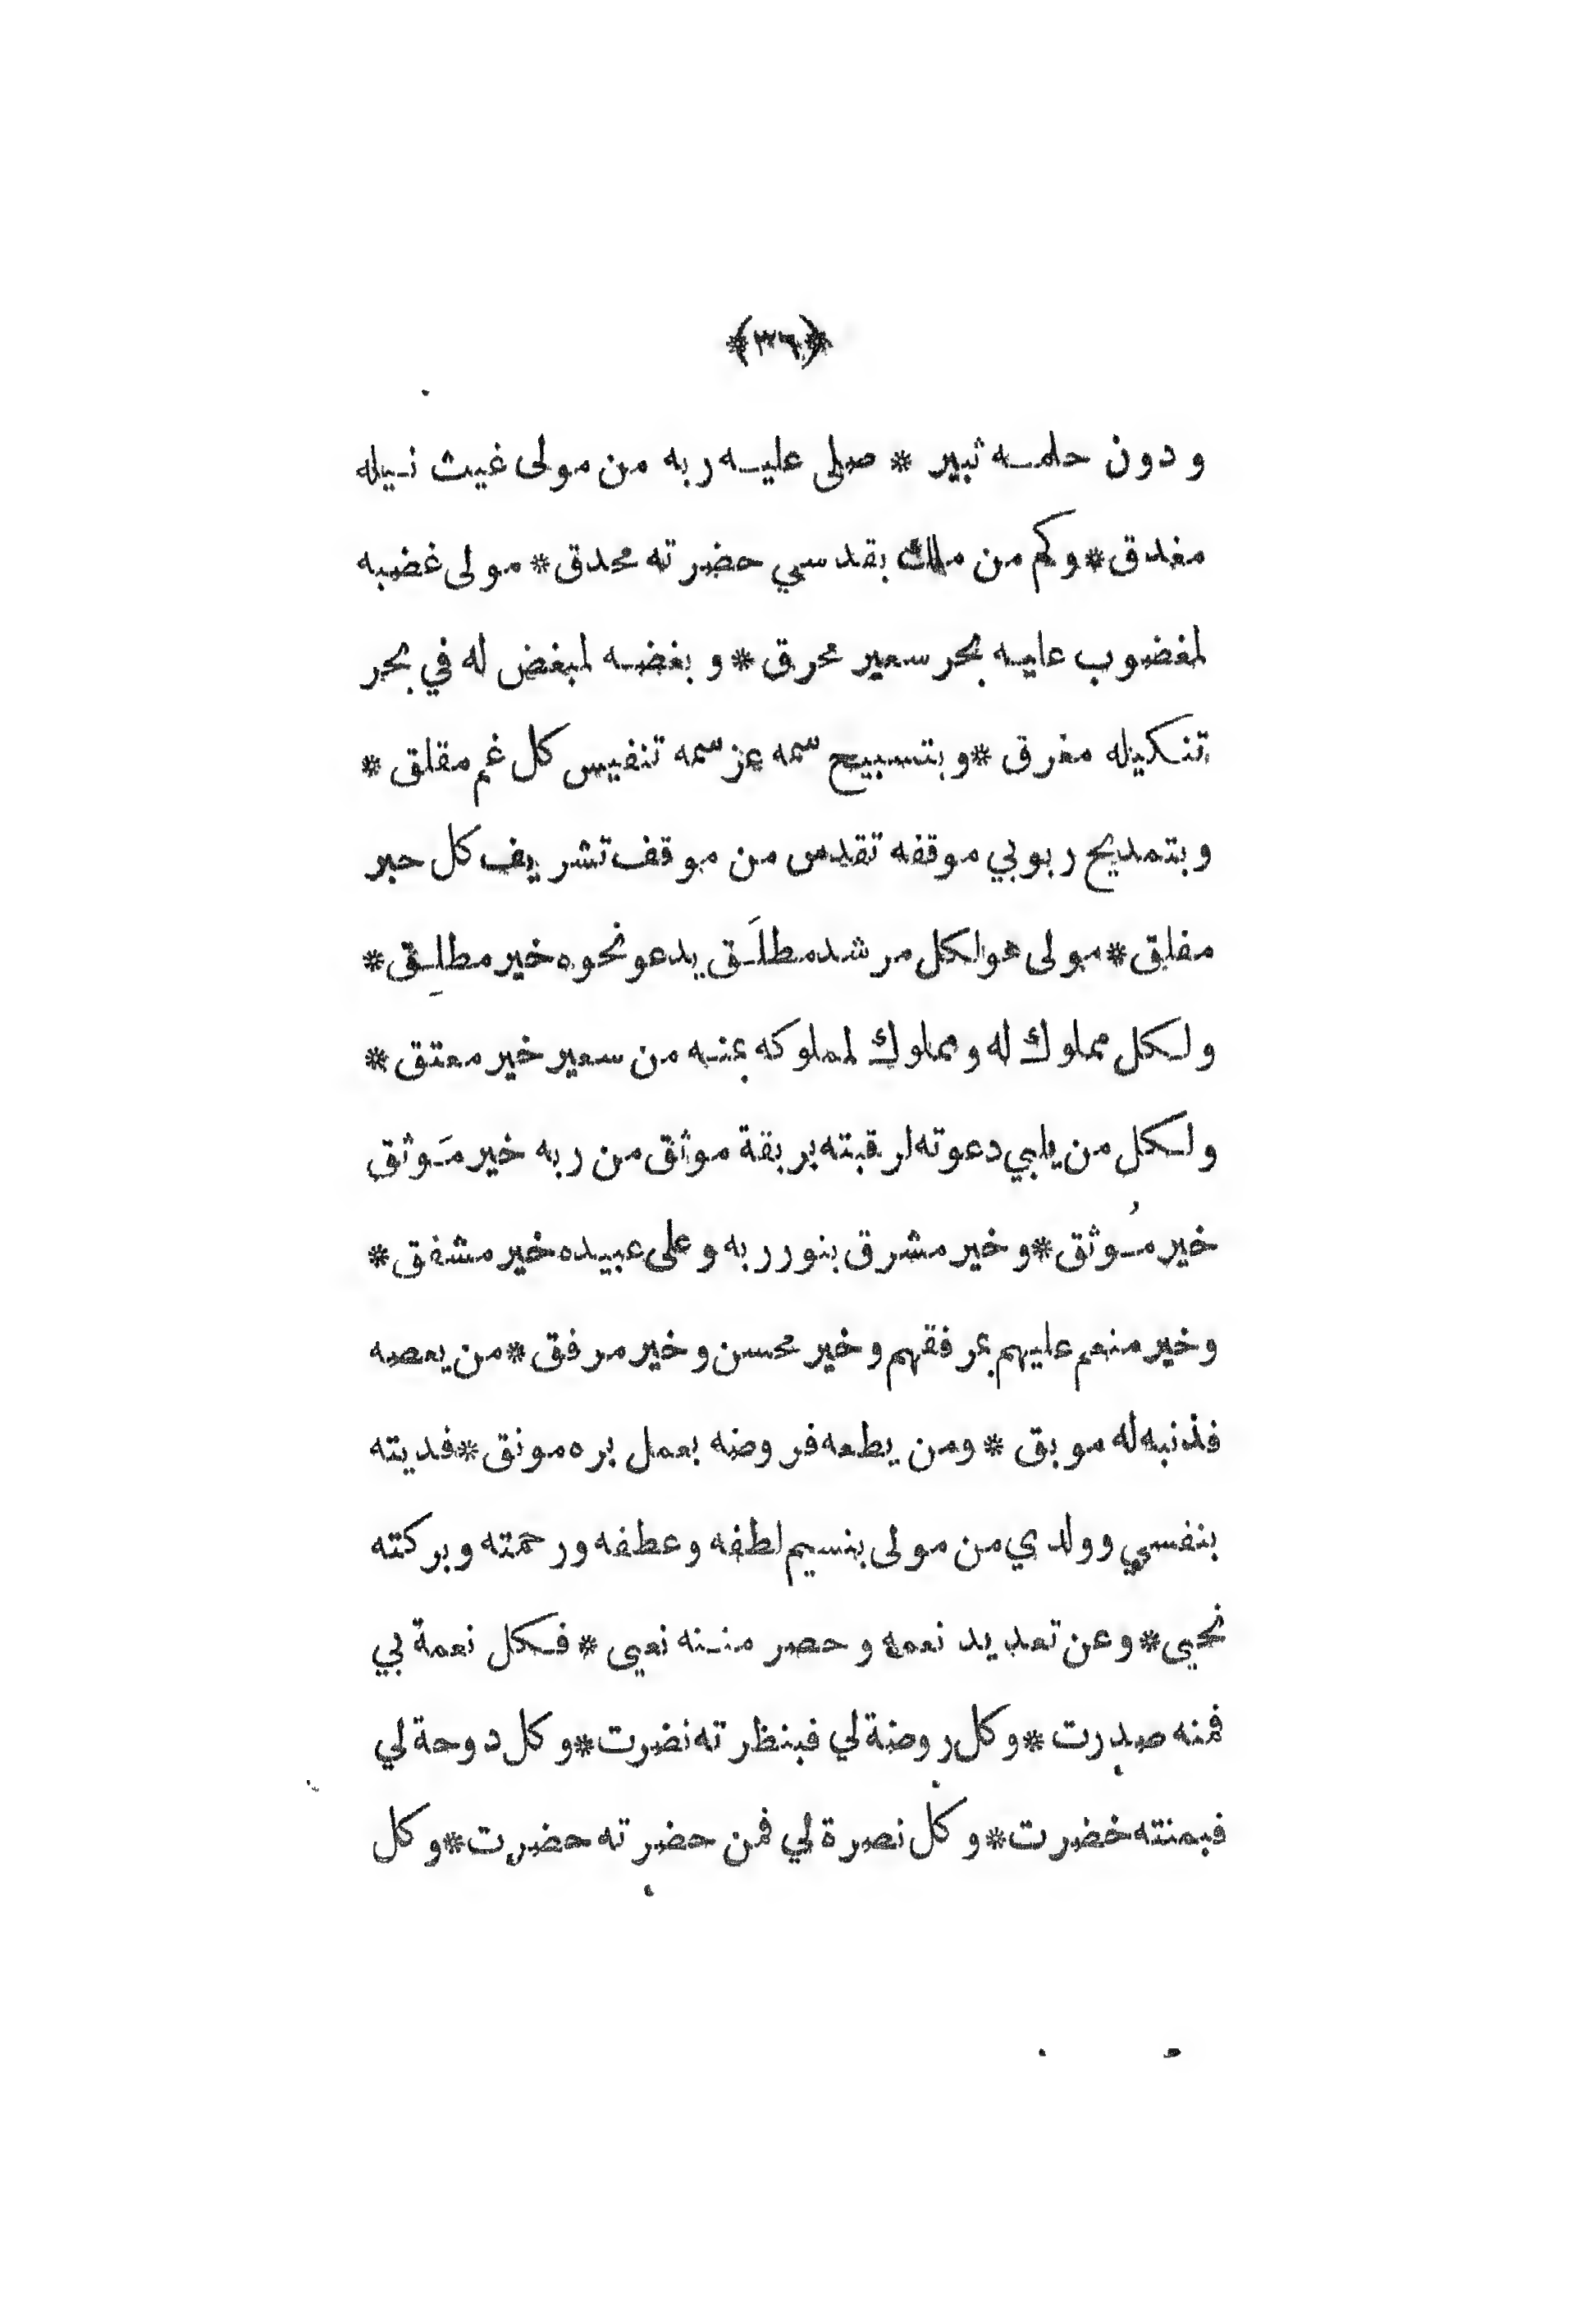 *(٣٦)*
ودون حلمه ثبير * صلى عليه ربه من مولى غيث نيله
مغدق * وكم من ملك بقدسي حضرته محدق * مولى غضبه
لمغضوب عليه بحر سعير محرق * وبغضه لمبغض له في بحر
تنكيله مغرق * وبتسبيح سمه عز سمه تنفيس كل غم مقلق *
وبتمديح ربوبي موقفه تقدس من موقف تشريف كل حبر
مفلق * مولى هو لكل مرشد مطلَق يدعو نحوه خير مطلِق *
ولكل مملوك له ومملوك لمملوكه بمنه من سعير خير معتق *
ولكل من يلبي دعوته لرقبته بربقة موثق من ربه خير مَوثق
خير مُوثق * وخير مشرق بنور ربه وعلى عبيده خير مشفق *
وخير منعم عليهم بمرفقهم وخير محسن وخير مرفق * من يعصه
فذنبه له موبق * ومن يطعه فروضه بعمل بره مونق * فديته
بنفسي وولدي من مولى بنسيم لطفه وعطفه ورحمته وبركته
نحيى * وعن تعديد نعمه وحصر مننه نعيى * فكل نعمة بي
فمنه صدرت * وكل روضة لي فبنظرته نضرت * وكل دوحة لي
فبمنته خضرت * وكل نصرة لي فمن حضرته حضرت * وكل